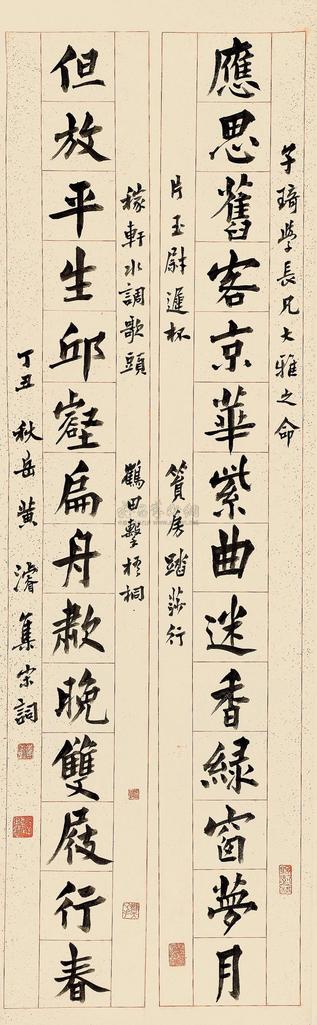 子琦學長兄大雅之命
應思舊客京華紫曲迷香綠窗夢月
片玉尉遲杯
篔房踏莎行
稼軒水調歌頭
鶴田擊梧桐
但放平生邱壑扁舟晚雙屐行春
丁丑 秋岳黃濬集宋詞